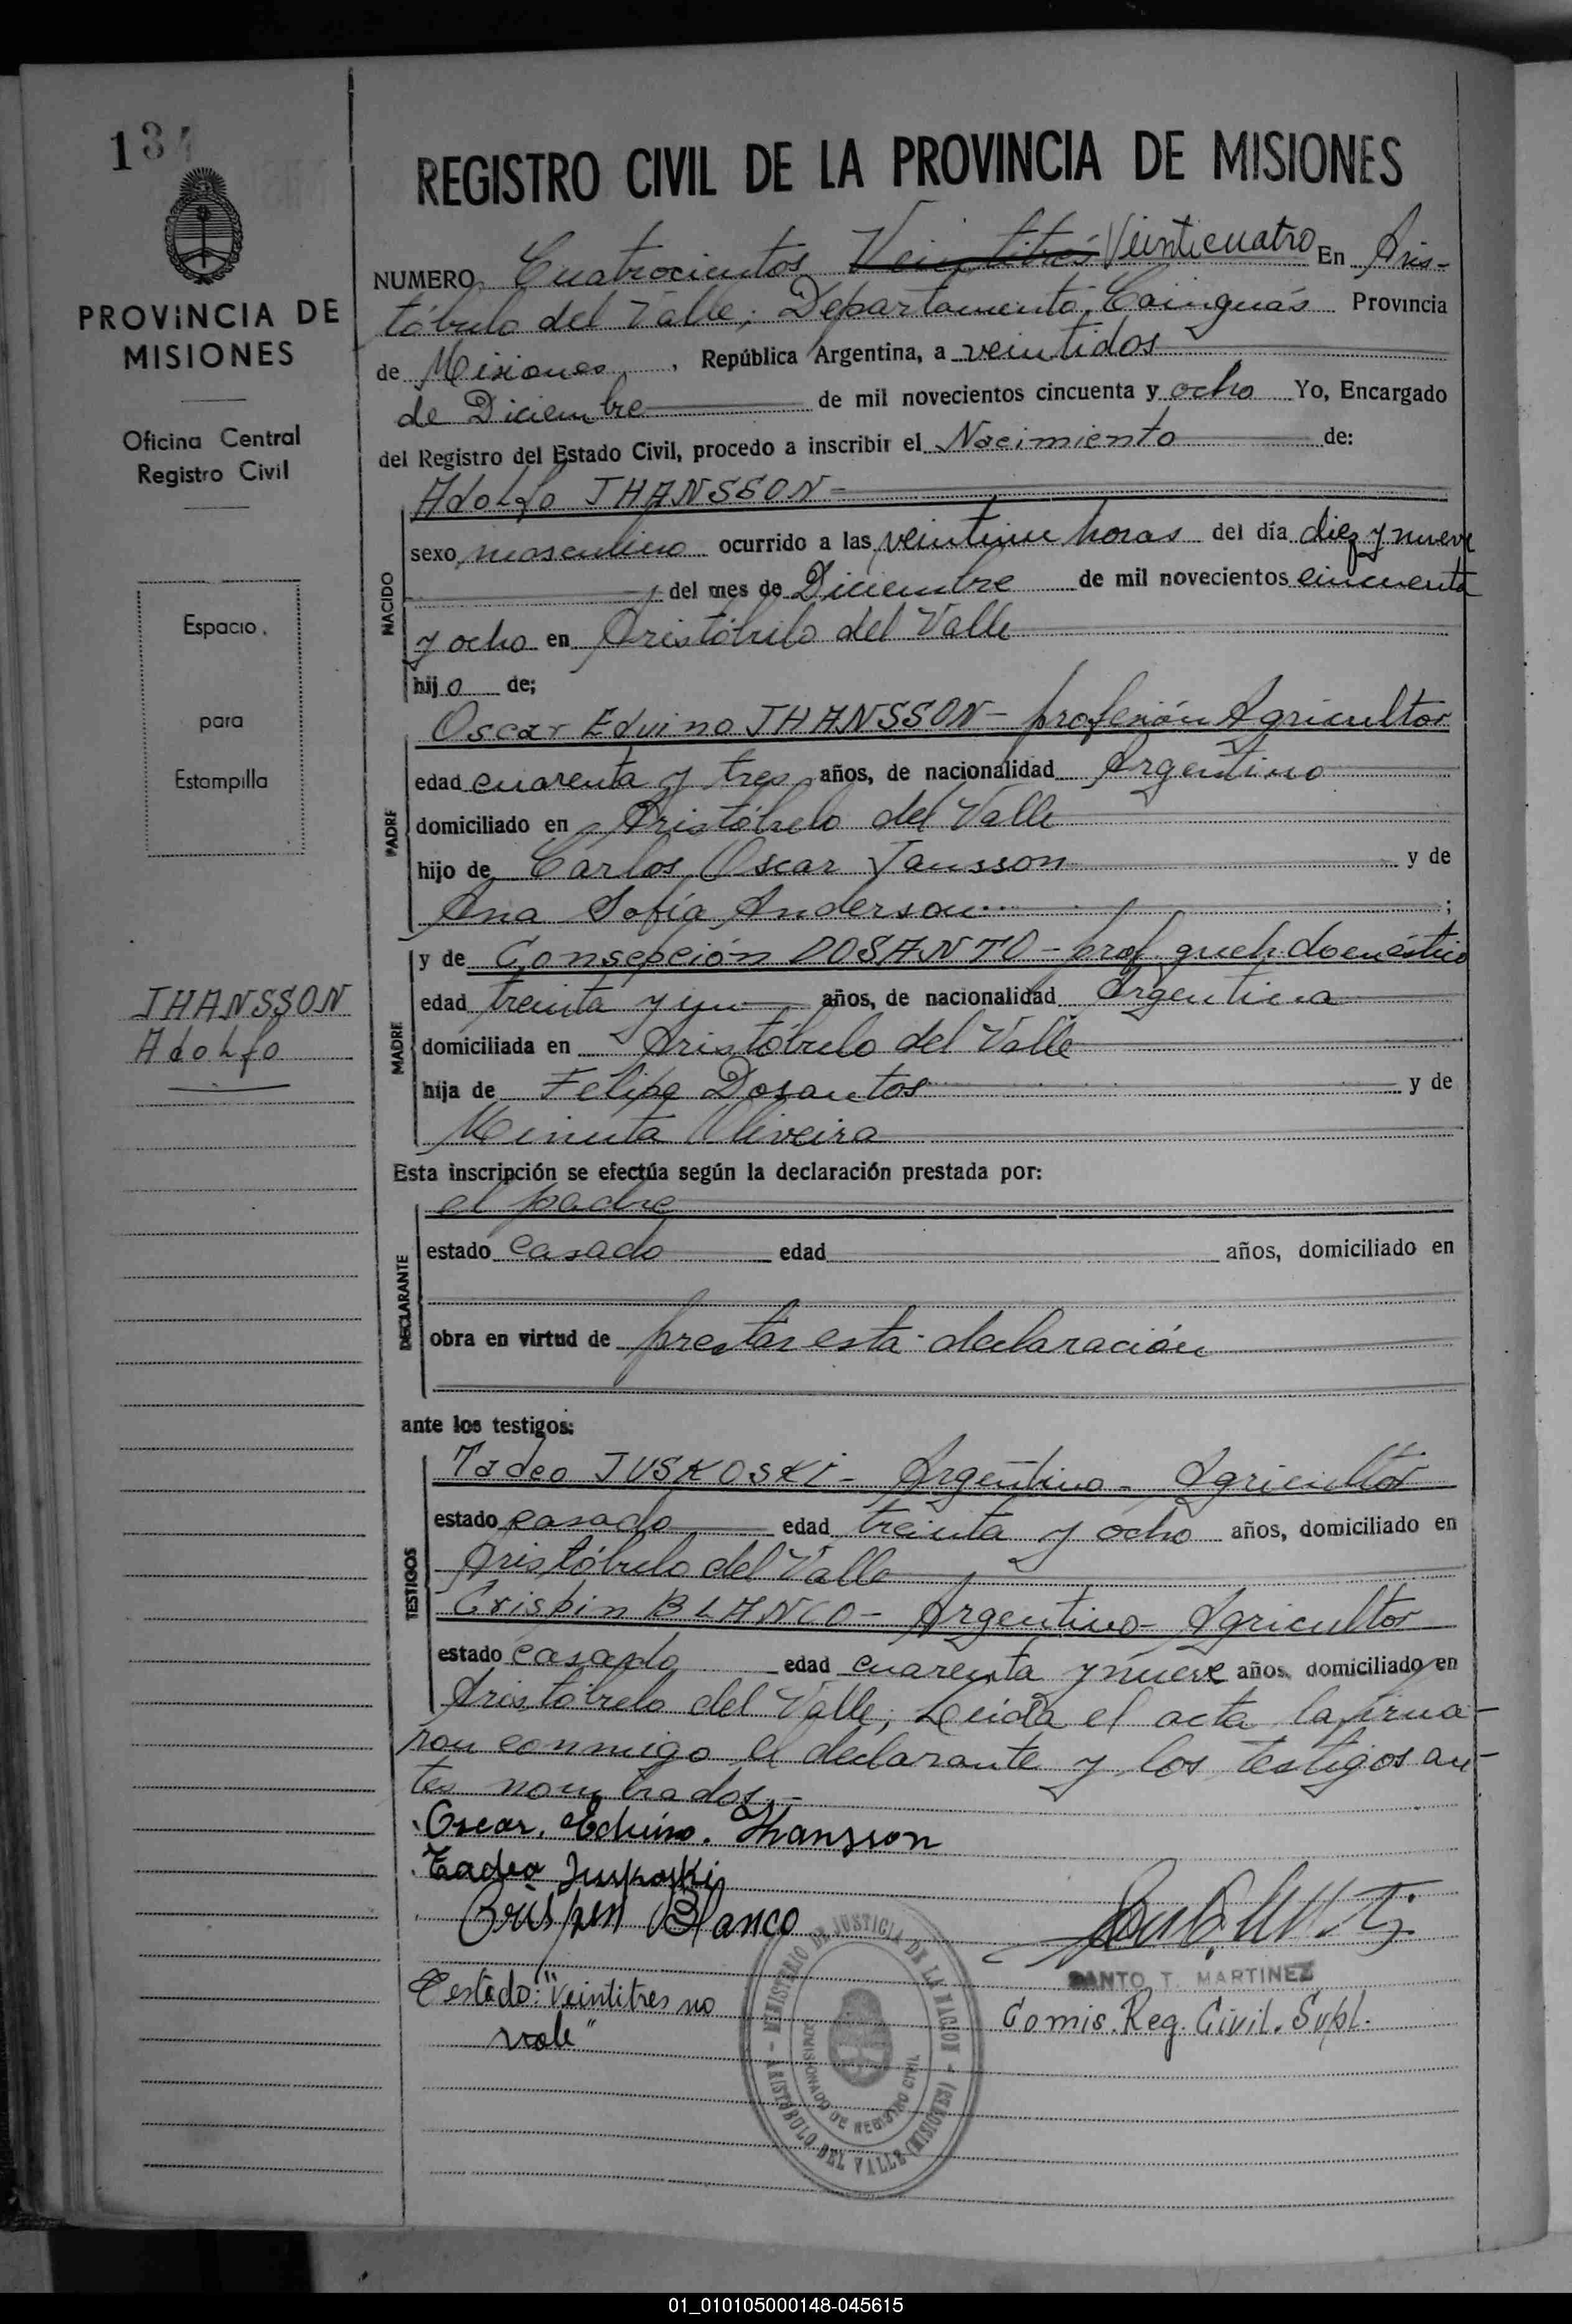 134
PROVINCIA DE
MISIONES
Oficina Central
Registro Civil
Espacio
para
Estampilla
JHANSSON
Adolfo
REGISTRO CIVIL DE LA PROVINCIA DE MISIONES
NUMERO Cuatrocientos Veintitrés Veinticuatro En Aris-
tóbulo del Valle, Departamento Cainguás Provincia
de Misiones, República Argentina, a veintidos
de Diciembre de mil novecientos cincuenta y ocho Yo, Encargado
del Registro del Estado Civil, procedo a inscribir el Nacimiento de:
Adolfo JHANSSON-
NACIDO
sexo masculino ocurrido a las veintiun horas del día diez y nueve
del mes de Diciembre de mil novecientos cincuenta
y ocho en Aristóbulo del Valle
hijo de;
PADRE
Oscar Eduino JHANSSON- profesión Agricultor
edad cuarenta y tres años, de nacionalidad Argentino
domiciliado en Aristóbulo del Valle
hijo de Carlos Oscar Jansson y de
Ana Sofía Anderson ;
MADRE
y de Consepción DOSANTO- prof. queh. doméstico
edad treinta y un años, de nacionalidad Argentina
domiciliada en Aristóbulo del Valle
hija de Felipe Dosantos y de
Minuta Oliveira
Esta inscripción se efectúa según la declaración prestada por:
DECLARANTE
el padre
estado casado edad años, domiciliado en
obra en virtud de prestar esta declaración
ante los testigos:
TESTIGOS
Tadeo JUSKOSKI- Argentino- Agricultor
estado casado edad treinta y ocho años, domiciliado en
Aristóbulo del Valle
Crispin BLANCO- Argentino- Agricultor
estado casado edad cuarenta y nueve años, domiciliado en
Aristóbulo del Valle; Leida el acta la firma-
ron conmigo el declarante y los testigos an-
tes nombrados.-
Oscar. Eduino. Jhansson
Tadeo Juskoski
Crispen Blanco
SANTO T. MARTINEZ
Comis. Reg. Civil. Supl.
Testado: "Veintitres no
vale"
MINISTERIO DE JUSTICIA DE LA NACION - ARISTOBULO DEL VALLE (MISIONES)
COMISIONADO DE REGISTRO CIVIL
01_010105000148-045615